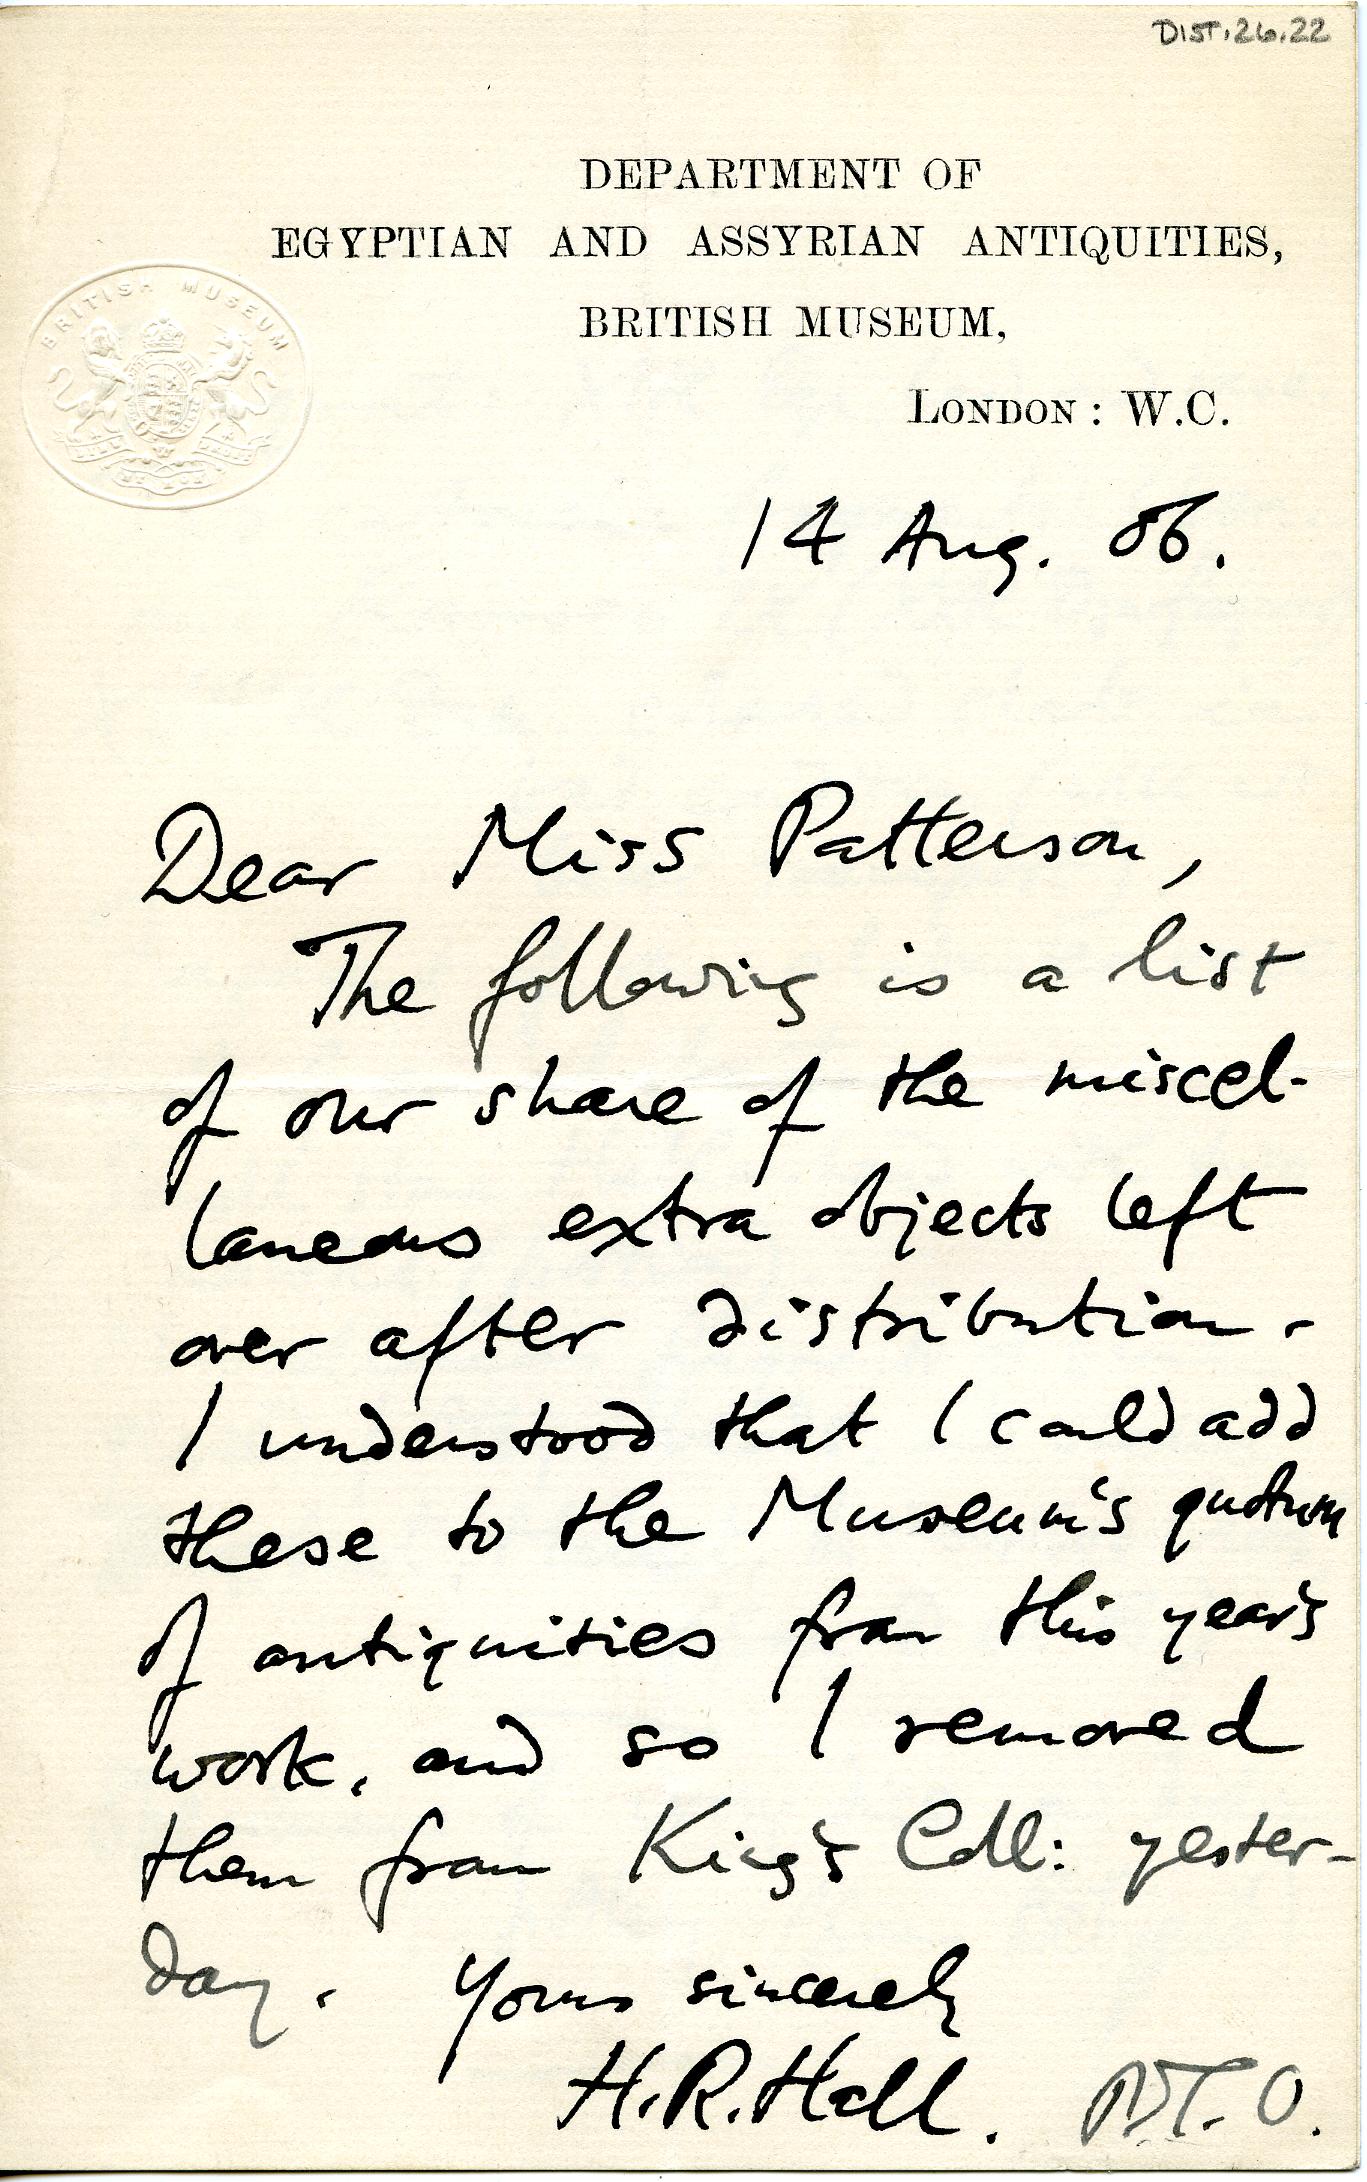 DIST.26.22
DEPARTMENT OF
EGYPTIAN AND ASSYRIAN ANTIQUITIES,
BRITISH MUSEUM,
LONDON: W.C.
BRITISH MUSEUM
14 Aug. 06.
Dear Miss Patterson,
The following is a list
of our share of the miscel-
laneous extra objects left
over after distribution.
I understood that I could add
these to the Museum's quotum
of antiquities from this year's
work, and so I removed
them from King's Coll: yester-
day. Yours sincerely
H.R.Hall. P.T.O.